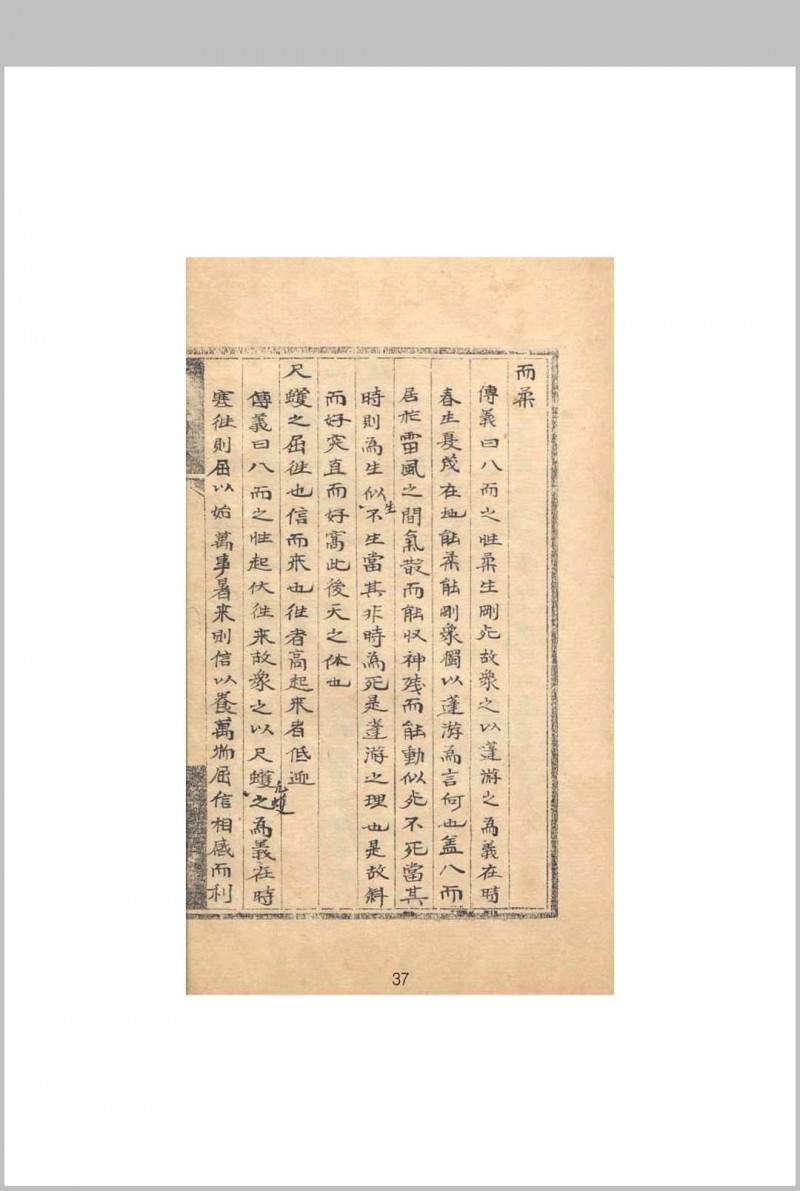 而柔
傳義曰八而之性柔生剛死故衆之以蓬游之為義在時
春生夏茂在地能柔能剛衆獨以蓬游為言何也盖八而
居於雷風之間氣散而能收神殘而能動似死不死當其
時則為生似生不生當其非時為死是蓬游之理也是故斜
而好突直而好寓此後天之体也
尺蠖之屈徃也信而来也徃者高起来者低迎
傳義曰八而之性起伏徃来故衆之以尺蠖之為義在時
寒徃則屈以始萬事暑来則信以養萬物屈信相感而利
37